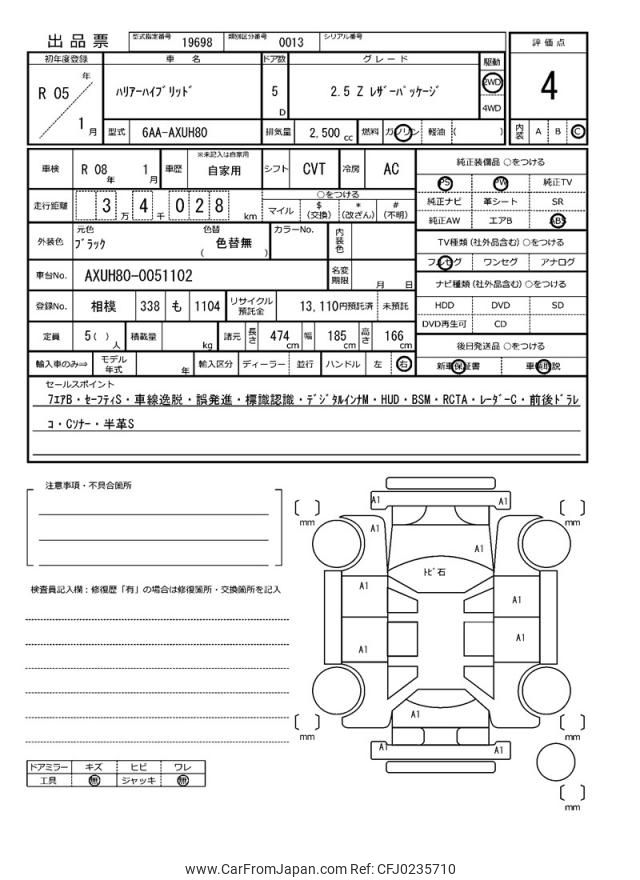 出品票 型式指定番号 19698 類別区分番号 0013 シリアル番号
評価点
4
内装 A B C
初年度登録 車名 ドア数 グレード 駆動
R 05 年 ハリアーハイブリッド 5 D 2.5 Z レザーパッケージ 2WD
4WD
1 月 型式 6AA-AXUH80 排気量 2,500 cc 燃料 ガソリン 軽油 ( )
車検 R 08 年 1 月 車歴 ※未記入は自家用 自家用 シフト CVT 冷房 AC
走行距離 3 万 4 千 0 2 8 km
○をつける
マイル $ (交換) * (改ざん) # (不明)
外装色 元色 ブラック 色替 ( 色替無 ) カラーNo. 内装色
車台No. AXUH80-0051102 名変期限 月 日
登録No. 相模 338 も 1104 リサイクル預託金 13,110円預託済 未預託
定員 5( ) 人 積載量 kg 諸元 長さ 474 cm 幅 185 cm 高さ 166 cm
輸入車のみ⇒ モデル年式 年 輸入区分 ディーラー 並行 ハンドル 左 右
純正装備品 ○をつける
PS PW 純正TV
純正ナビ 革シート SR
純正AW エアB ABS
TV種類(社外品含む)○をつける
フルセグ ワンセグ アナログ
ナビ種類(社外品含む)○をつける
HDD DVD SD
DVD再生可 CD
後日発送品 ○をつける
新車保証書 車輌取説
セールスポイント
7エアB・セーフティS・車線逸脱・誤発進・標識認識・デジタルインナM・HUD・BSM・RCTA・レーダーC・前後ドラレ
コ・Cソナー・半革S
注意事項・不具合箇所
検査員記入欄:修復歴「有」の場合は修復箇所・交換箇所を記入
A1 A1
A1 A1
トビ石
A1 A1
A1 A1
A1
A1 A1
mm mm
mm mm
mm
ドアミラー キズ ヒビ ワレ
工具 無 ジャッキ 無
www.CarFromJapan.com Ref: CFJ0235710